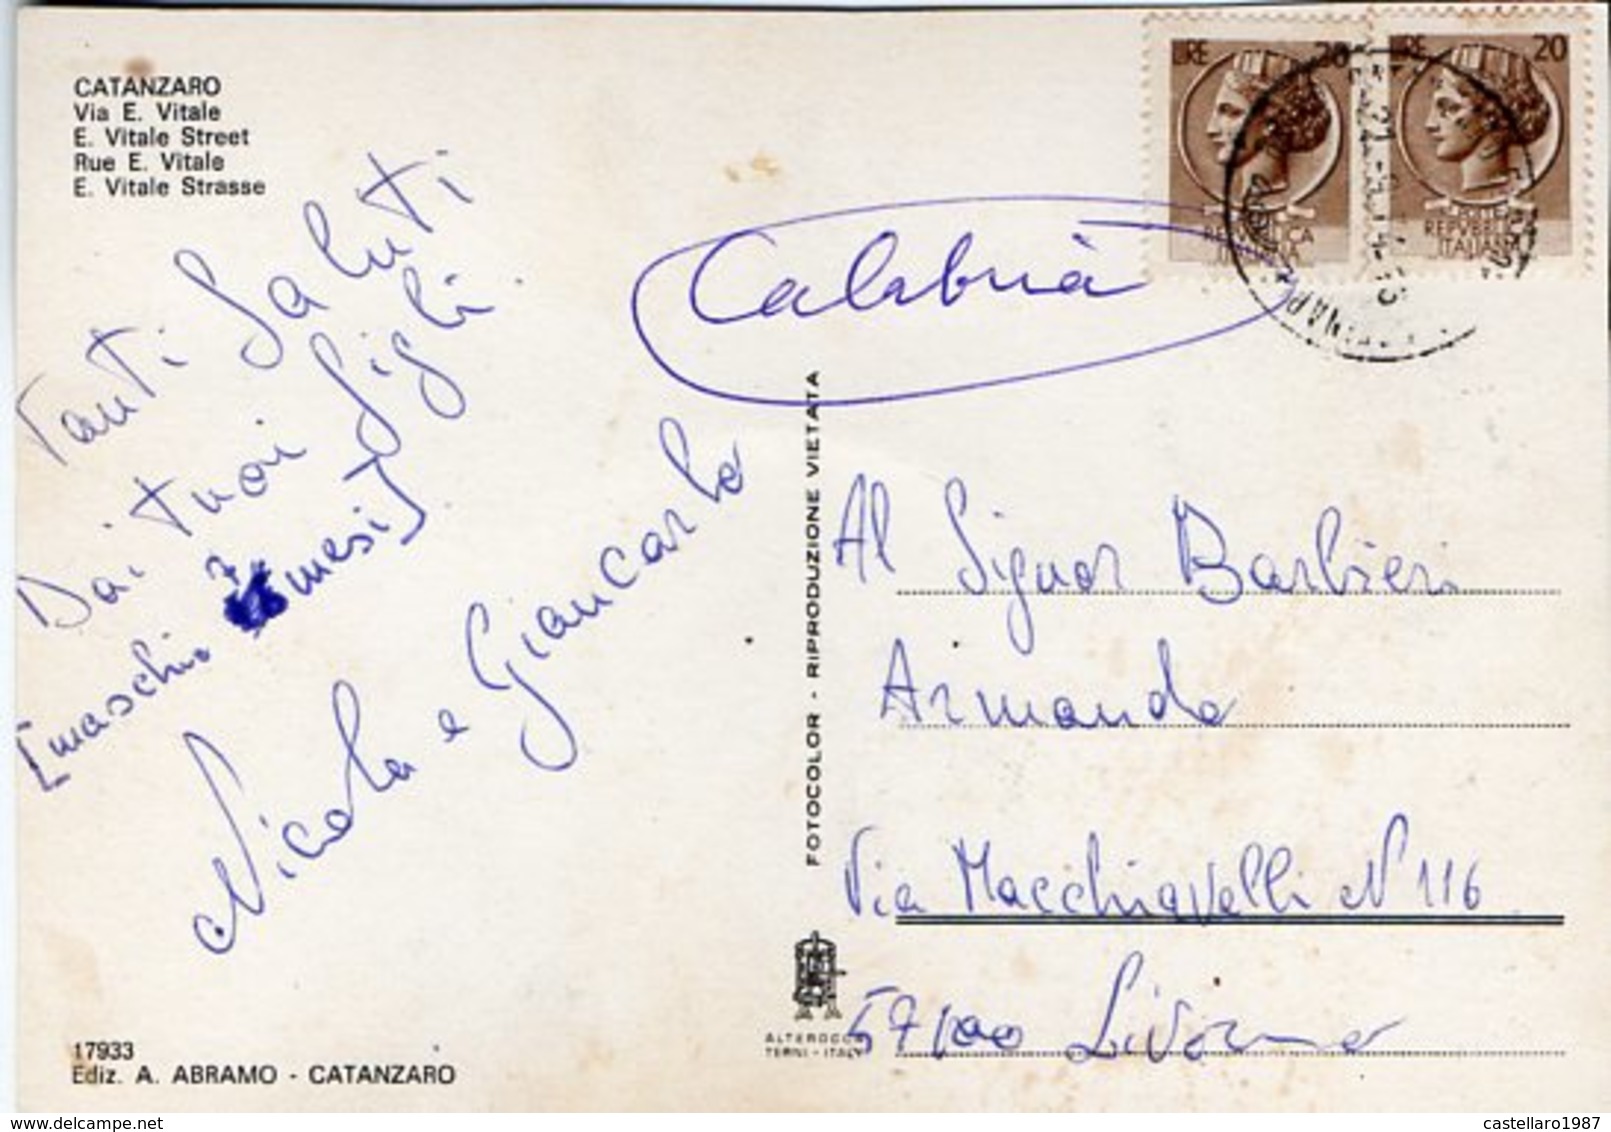 CATANZARO
Via E. Vitale
E. Vitale Street
Rue E. Vitale
E. Vitale Strasse
Tanti Saluti
Dai tuoi figli
[maschio 7 mesi]
Nicola e Giancarlo
Calabria
LIRE 20
REPVBBLICA
ITALIANA
LIRE 20
REPVBBLICA
ITALIANA
FOTOCOLOR - RIPRODUZIONE VIETATA
Al Signor Barbieri
Armando
Via Macchiavelli N 116
57100 Livorno
ALTEROCCA
TERNI - ITALY
17933
Ediz. A. ABRAMO - CATANZARO
www.delcampe.net
castellaro1987